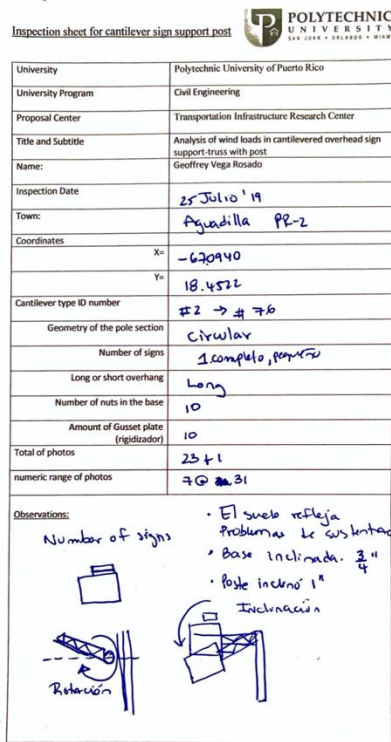 Inspection sheet for cantilever sign support post
POLYTECHNIC
UNIVERSITY
SAN JUAN • ORLANDO • MIAMI
University Polytechnic University of Puerto Rico
University Program Civil Engineering
Proposal Center Transportation Infrastructure Research Center
Title and Subtitle Analysis of wind loads in cantilevered overhead sign
support-truss with post
Name: Geoffrey Vega Rosado
Inspection Date 25 Julio '19
Town: Aguadilla PR-2
Coordinates
X= -670940
Y= 18.4522
Cantilever type ID number #2 → # 76
Geometry of the pole section Circular
Number of signs 1 completo, pequeño
Long or short overhang Long
Number of nuts in the base 10
Amount of Gusset plate 10
(rigidizador)
Total of photos 23+1
numeric range of photos 7@ 31
Observations:
Number of signs
• El suelo refleja
Problemas de sustentac
• Base inclinada. 3/4"
• Poste inclinó 1"
Inclinación
Rotación